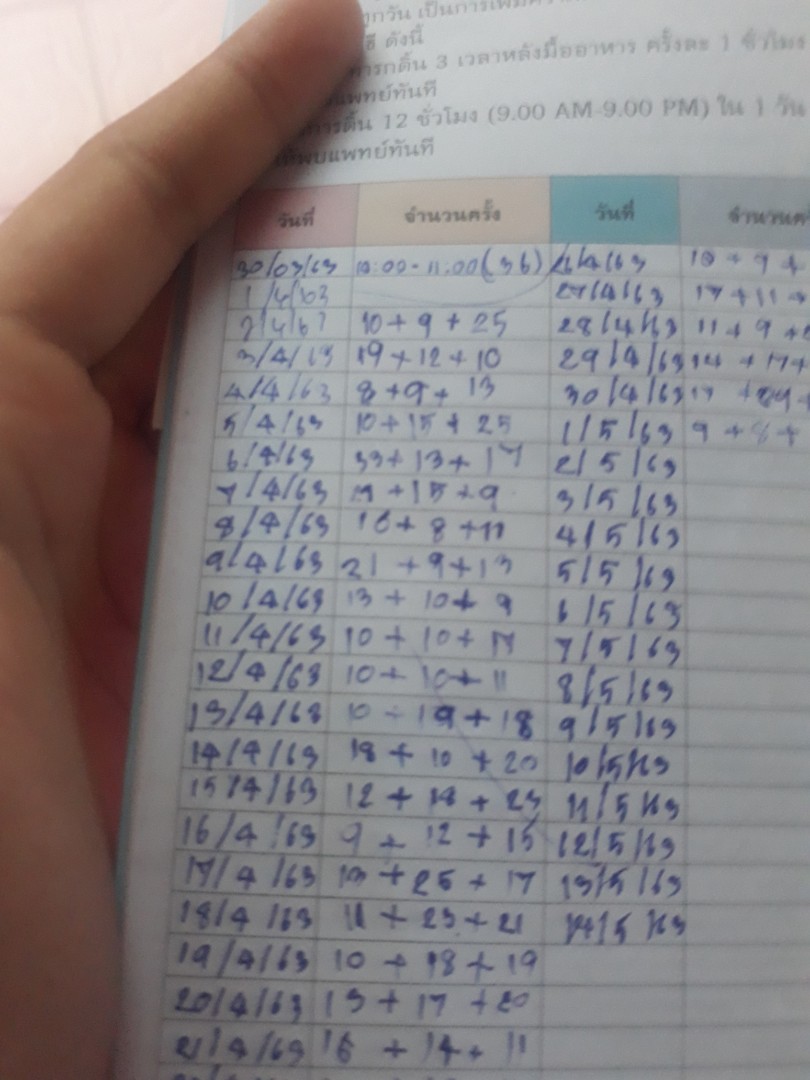 ทุกวัน เป็นการเพิ่มความ
ธี ดังนี้
ทารกดิ้น 3 เวลาหลังมื้ออาหาร ครั้งละ 1 ชั่วโมง
แพทย์ทันที
การดิ้น 12 ชั่วโมง (9.00 AM-9.00 PM) ใน 1 วัน
พบแพทย์ทันที
วันที่ จำนวนครั้ง วันที่ จำนวนค
30/03/63 10:00-11:00(36) 26/4/63 10 + 9 +
1/4/63 27/4/63 17 + 11 +
2/4/63 10 + 9 + 25 28/4/63 11 + 9 +
3/4/63 19 + 12 + 10 29/4/63 14 + 17 +
4/4/63 8 + 9 + 13 30/4/63 17 +
5/4/63 10 + 15 + 25 1/5/63 9 + 8 +
6/4/63 33 + 13 + 17 2/5/63
7/4/63 + 15 + 9 3/5/63
8/4/63 16 + 8 + 11 4/5/63
9/4/63 21 + 9 + 13 5/5/63
10/4/63 13 + 10 + 9 6/5/63
11/4/63 10 + 10 + 17 7/5/63
12/4/63 10 + 10 + 11 8/5/63
13/4/63 10 + 19 + 18 9/5/63
14/4/63 18 + 10 + 20 10/5/63
15/4/63 12 + 18 + 23 11/5/63
16/4/63 9 + 12 + 15 12/5/63
17/4/63 13 + 25 + 17 13/5/63
18/4/63 11 + 23 + 21 14/5/63
19/4/63 10 + 18 + 19
20/4/63 13 + 17 + 20
21/4/63 16 + 14 + 11